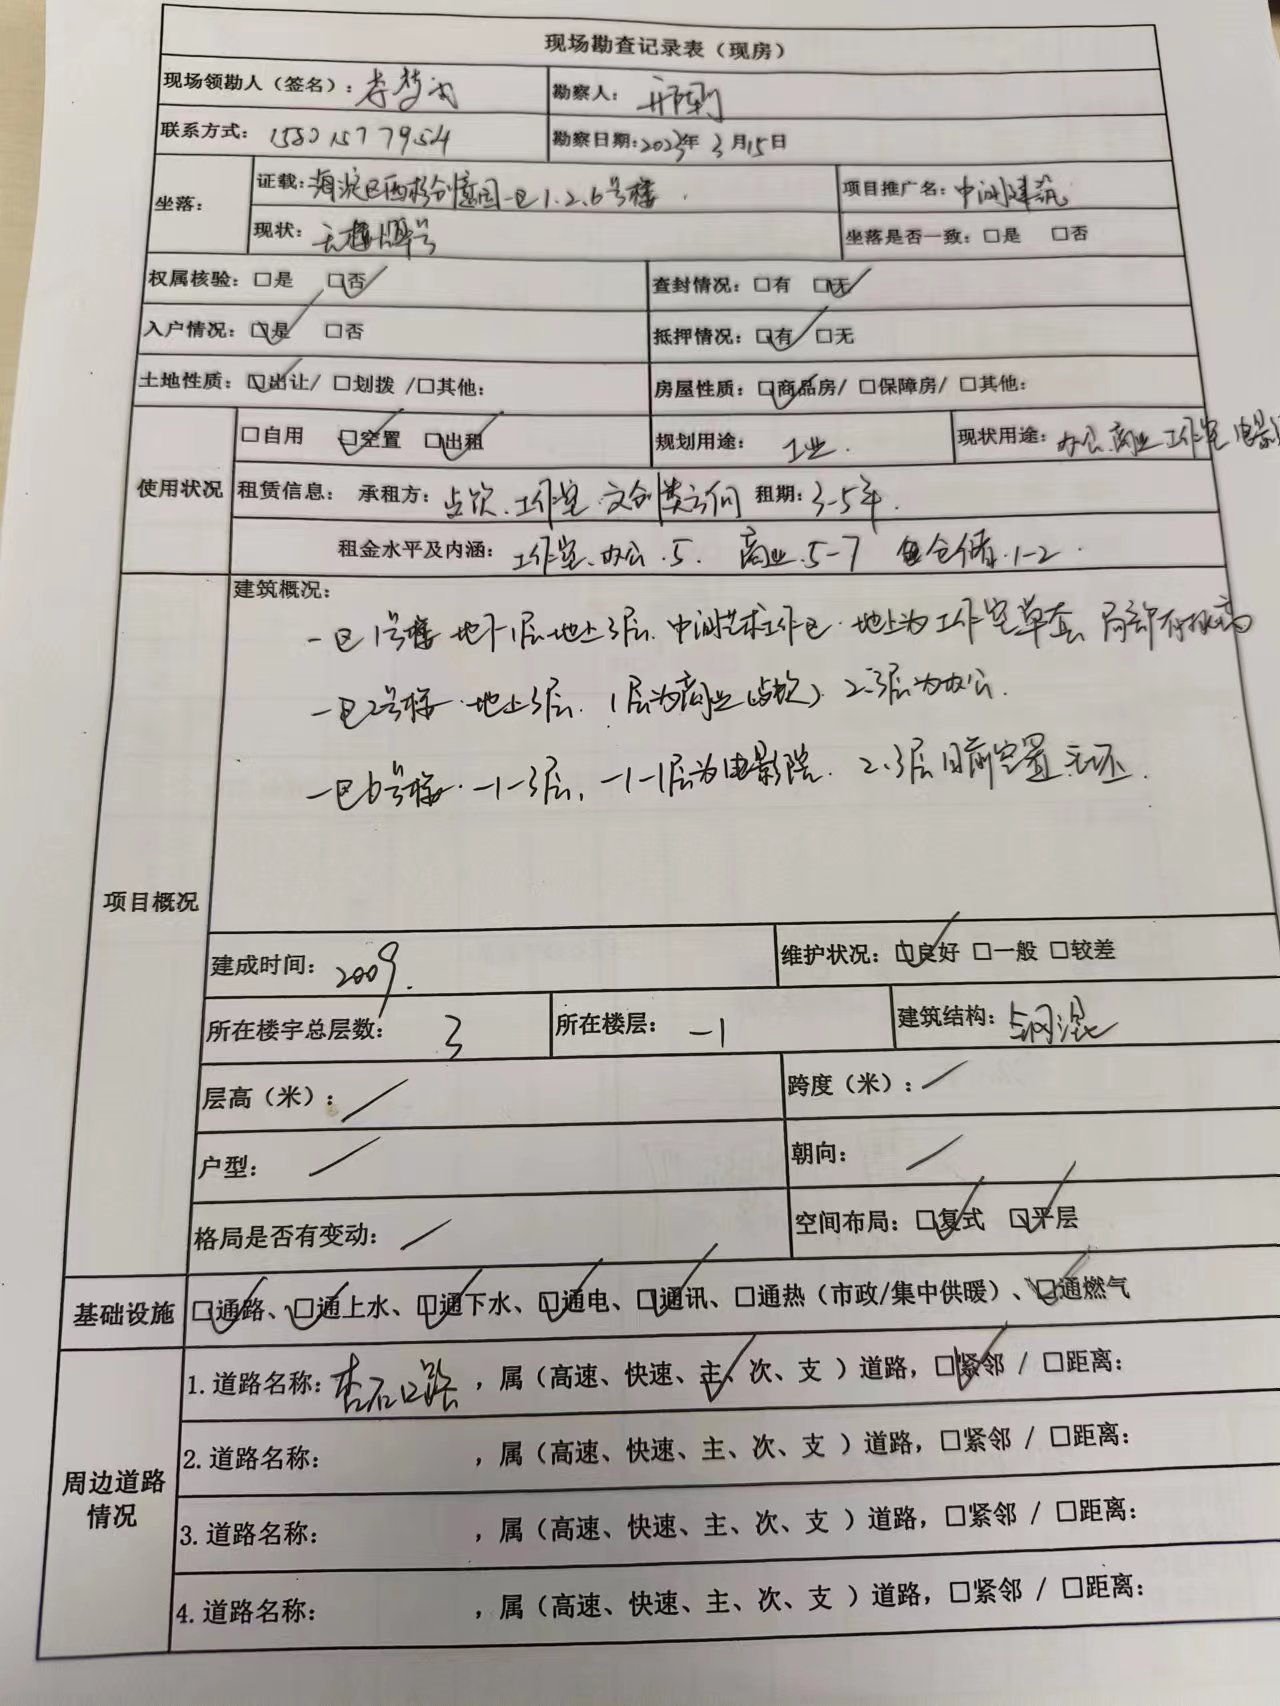 现场勘查记录表（现房）
现场领勘人（签名）：李梦
勘察人：
联系方式：15801577954
勘察日期:2023年3月15日
坐落：
证载:海淀区西杉创意园一区1.2.6号楼.
项目推广名：中间建筑
现状：无楼牌号
坐落是否一致：□是 □否
权属核验：□是 ☑否
查封情况：□有 ☑无
入户情况：☑是 □否
抵押情况：☑有 □无
土地性质：☑出让/ □划拨 /□其他:
房屋性质：☑商品房/ □保障房/ □其他:
使用状况
□自用 ☑空置 ☑出租
规划用途： 工业.
现状用途：办公.商业.工作室 电影
租赁信息： 承租方：餐饮.工作室.文创类公司 租期：3-5年.
租金水平及内涵：工作室、办公.5. 商业.5-7 仓储.1-2.
项目概况
建筑概况：
一区1号楼 地下1层-地上3层.中间艺术工作区.地上为工作室单套 局部有挑高
一区2号楼.地上3层.1层为商业(餐饮) 2.3层为办公.
一区6号楼.-1-3层,-1-1层为电影院. 2.3层目前空置 毛坯.
建成时间： 2009.
维护状况：☑良好 □一般 □较差
所在楼宇总层数： 3
所在楼层： -1
建筑结构：钢混
层高（米）：/
跨度（米）：/
户型： /
朝向： /
格局是否有变动： /
空间布局：☑复式 ☑平层
基础设施
☑通路、☑通上水、☑通下水、☑通电、☑通讯、□通热（市政/集中供暖）、☑通燃气
周边道路情况
1.道路名称：杏石口路 ，属（高速、快速、主✓、次、支 ）道路，☑紧邻 / □距离：
2.道路名称： ，属（高速、快速、主、次、支 ）道路，□紧邻 / □距离：
3.道路名称： ，属（高速、快速、主、次、支 ）道路，□紧邻 / □距离：
4.道路名称： ，属（高速、快速、主、次、支 ）道路，□紧邻 / □距离：